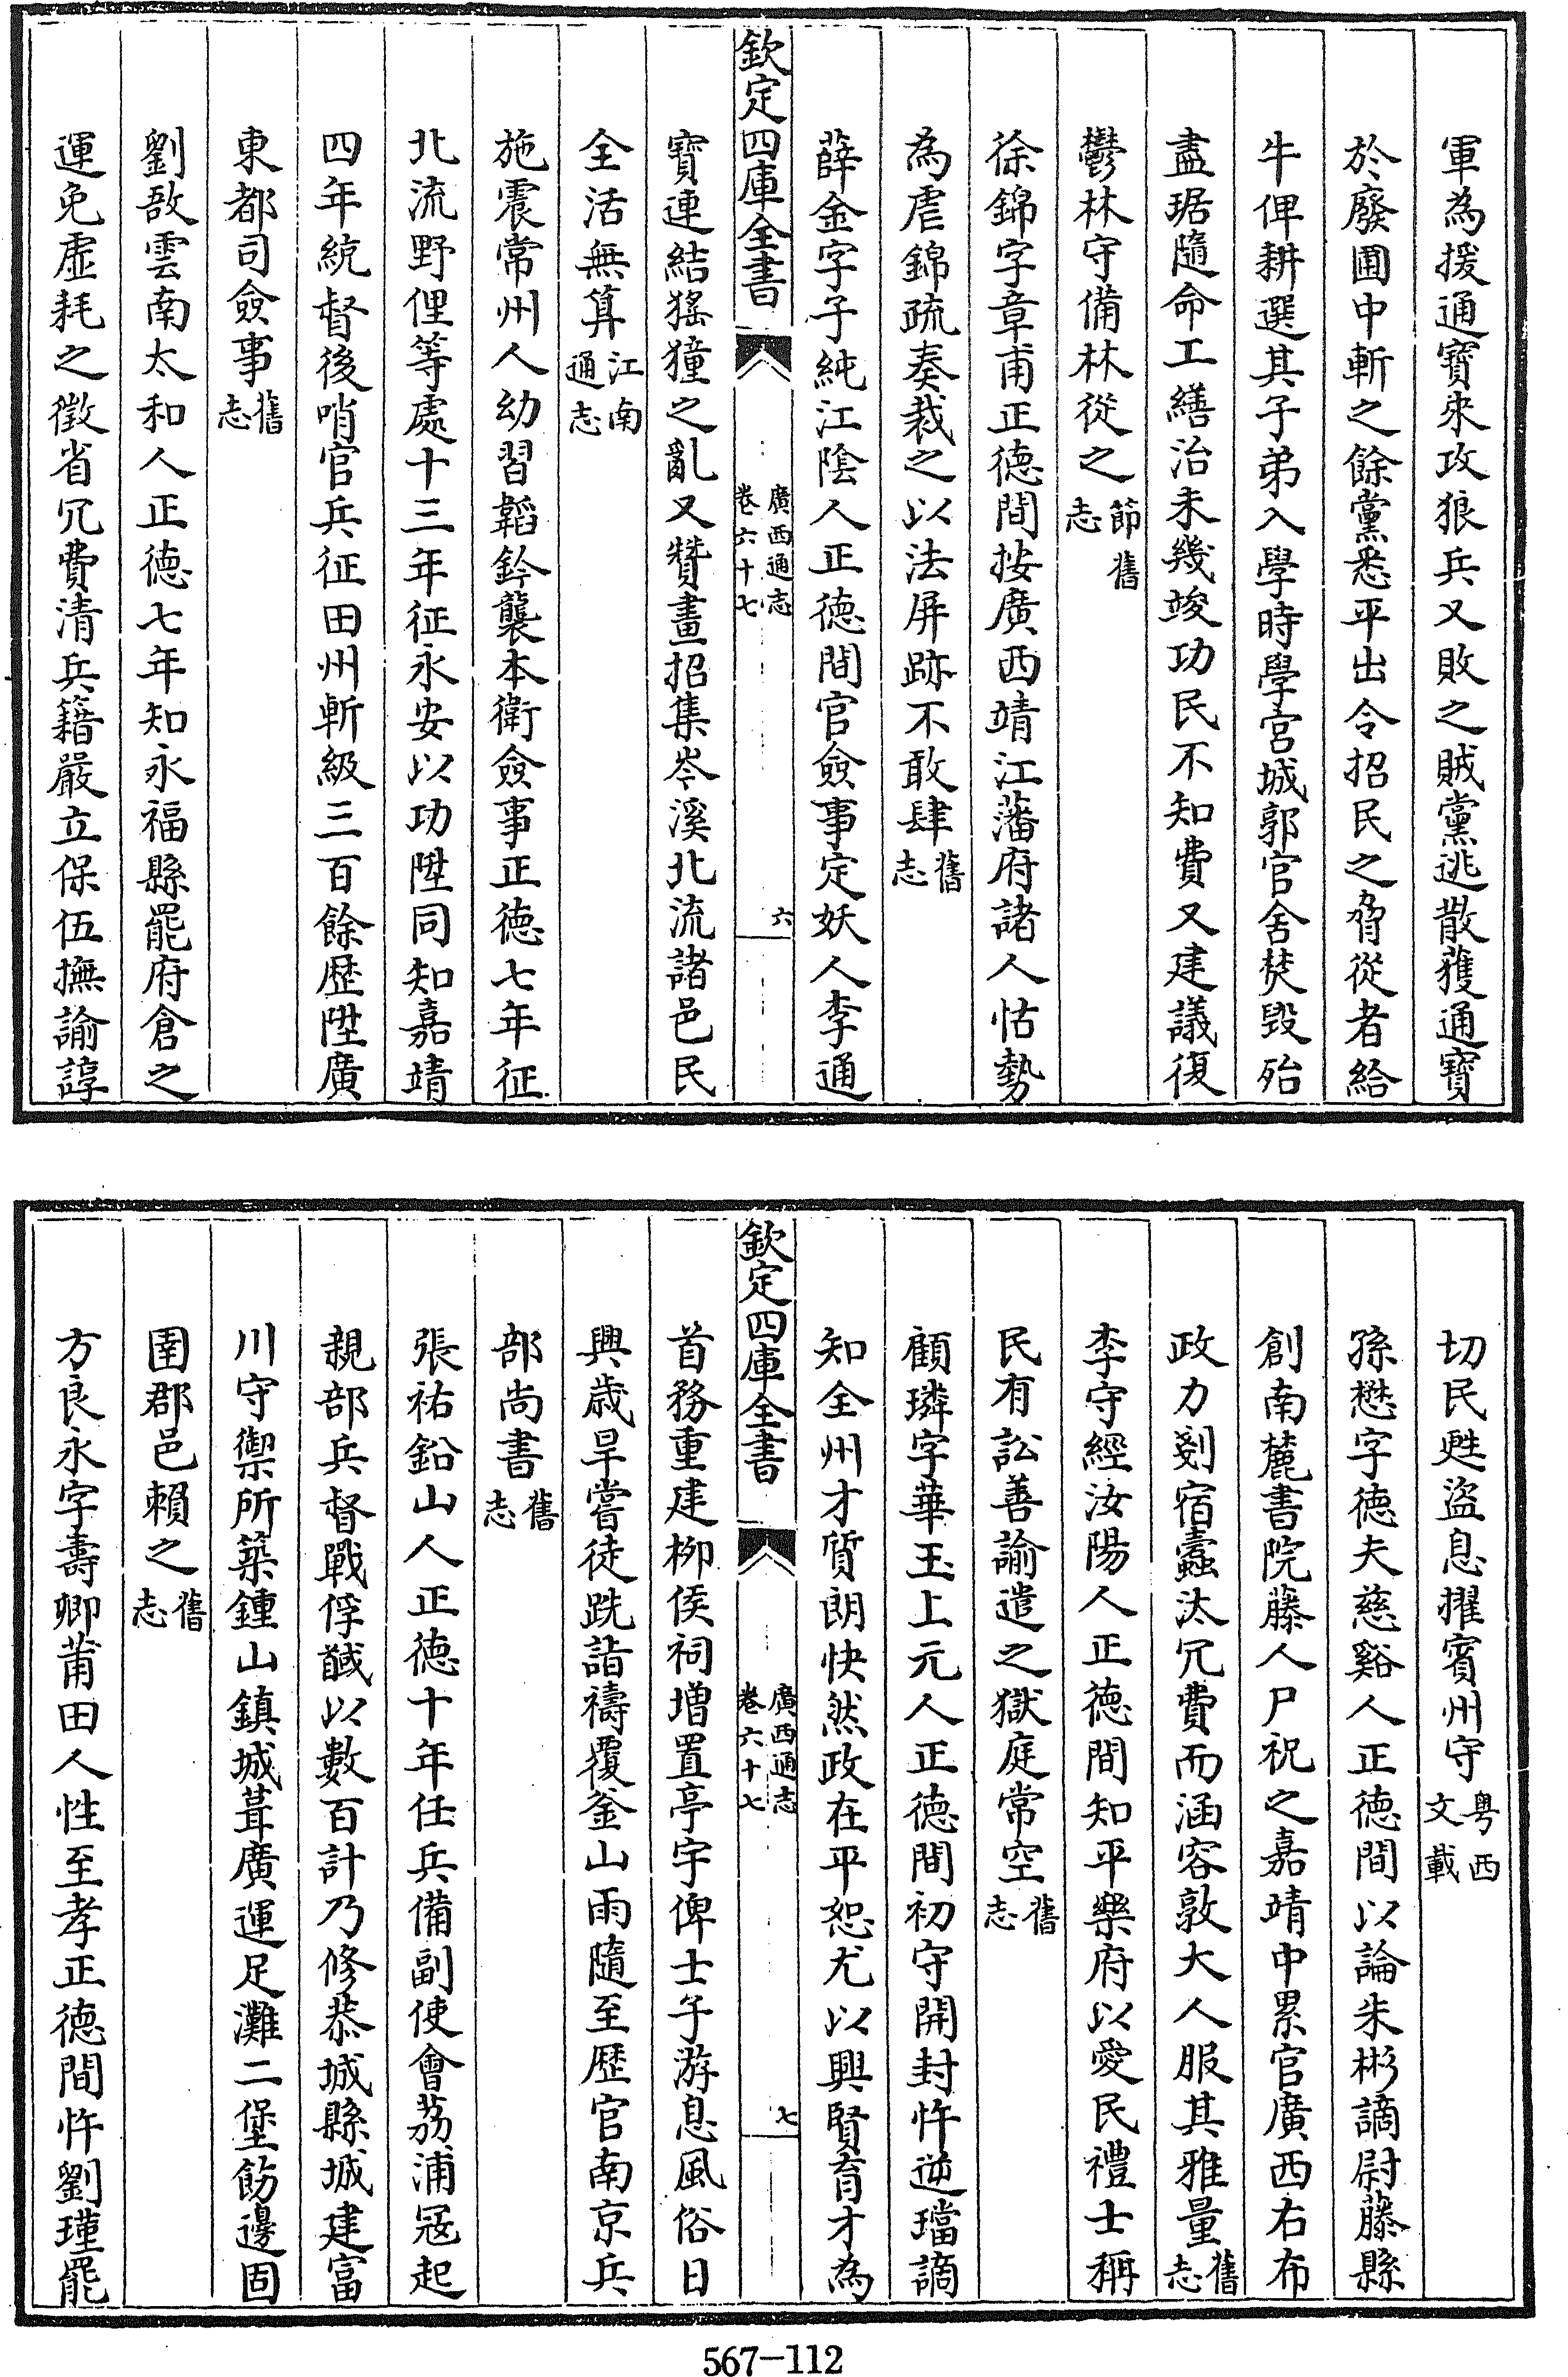 軍為援通寶來攻狼兵又敗之賊黨逃散獲通寶
於廢圃中斬之餘黨悉平出令招民之脅從者給
牛俾耕選其子弟入學時學宮城郭官舍焚毀殆
盡琚隨命工繕治未幾竣功民不知費又建議復
鬱林守備林從之節舊志
徐錦字章甫正德間按廣西靖江藩府諸人怙勢
為虐錦疏奏裁之以法屏跡不敢肆舊志
薛金字子純江陰人正德間官僉事定妖人李通
欽定四庫全書
廣西通志
卷六十七
六
寶連結猺獞之亂又贊畫招集岑溪北流諸邑民
全活無算江南通志
施震常州人幼習韜鈐襲本衛僉事正德七年征
北流野俚等處十三年征永安以功陞同知嘉靖
四年統督後哨官兵征田州斬級三百餘歷陞廣
東都司僉事舊志
劉敔雲南太和人正德七年知永福縣罷府倉之
運免虛耗之徵省冗費清兵籍嚴立保伍撫諭諄
切民甦盜息擢賓州守粵西文載
孫懋字德夫慈谿人正德間以論朱彬謫尉藤縣
創南麓書院藤人尸祝之嘉靖中累官廣西右布
政力剔宿蠹汰冗費而涵容敦大人服其雅量舊志
李守經汝陽人正德間知平樂府以愛民禮士稱
民有訟善諭遣之獄庭常空舊志
顧璘字華玉上元人正德間初守開封忤逆璫謫
知全州才質朗快然政在平恕尤以興賢育才為
欽定四庫全書
廣西通志
卷六十七
七
首務重建柳侯祠增置亭宇俾士子游息風俗日
興歲旱嘗徒跣詣禱覆釜山雨隨至歷官南京兵
部尚書舊志
張祐鉛山人正德十年任兵備副使會荔浦冦起
親部兵督戰俘馘以數百計乃修恭城縣城建富
川守禦所築鍾山鎮城葺廣運足灘二堡飭邊固
圉郡邑賴之舊志
方良永字壽卿莆田人性至孝正德間忤劉瑾罷
567-112